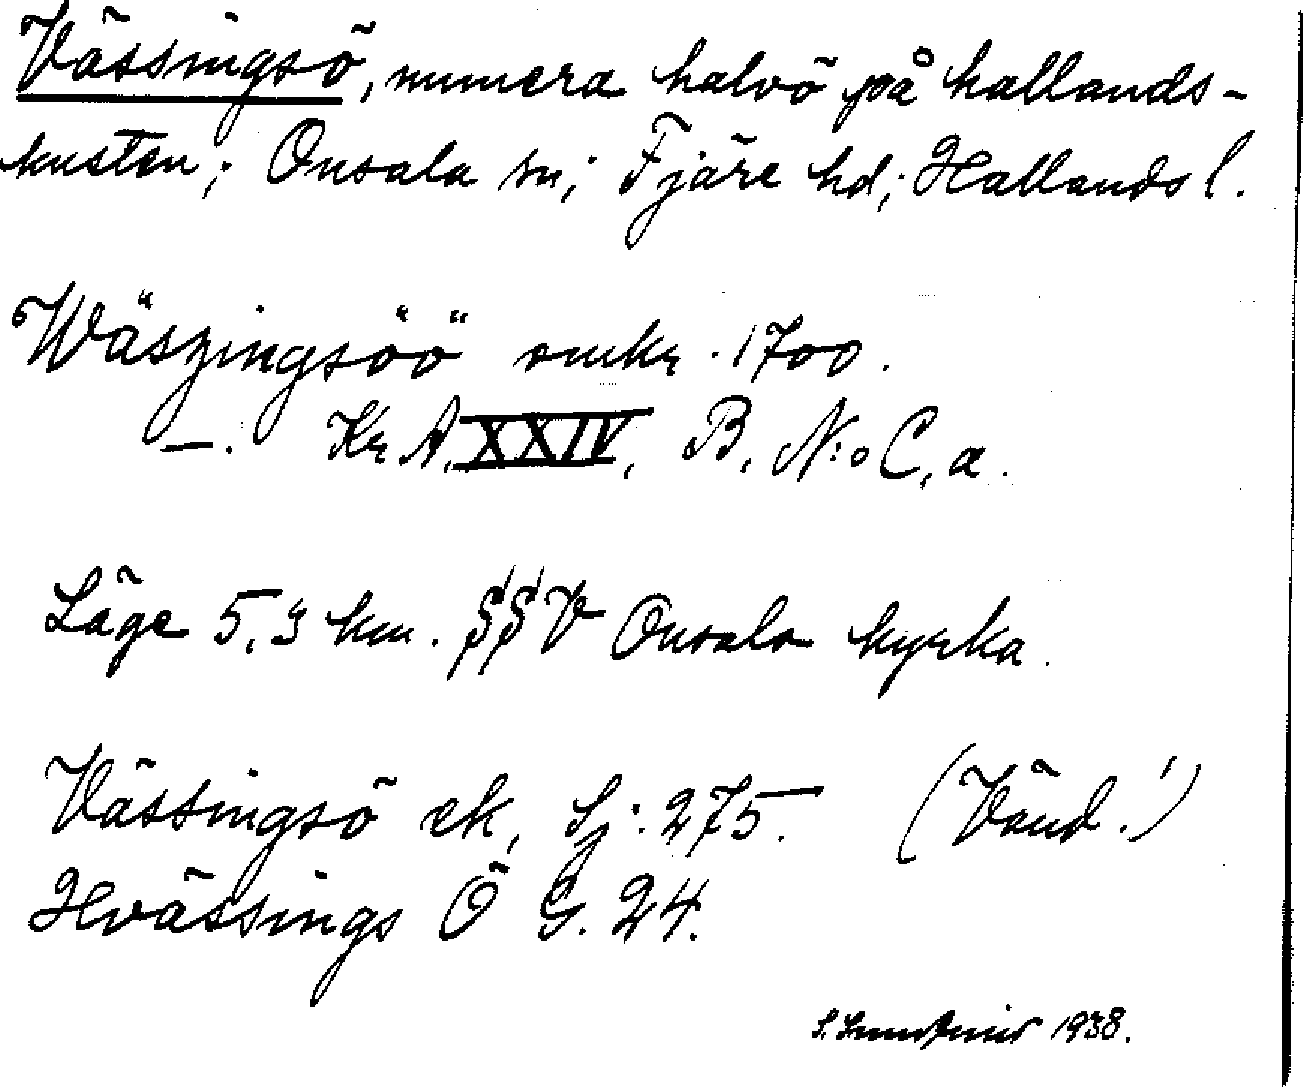 Vässingsö, numera halvö på hallands-
kusten; Onsala sn; Fjäre hd; Hallands l.
Wäszingsöö omkr. 1700.
—. Kr. A. XXIV, B, N:o C, a.
Läge 5,3 km. SSV Onsala kyrka.
Vässingsö ek, Sj: 275. (Vänd!)
Hvässings Ö G. 24.
S. 1938.